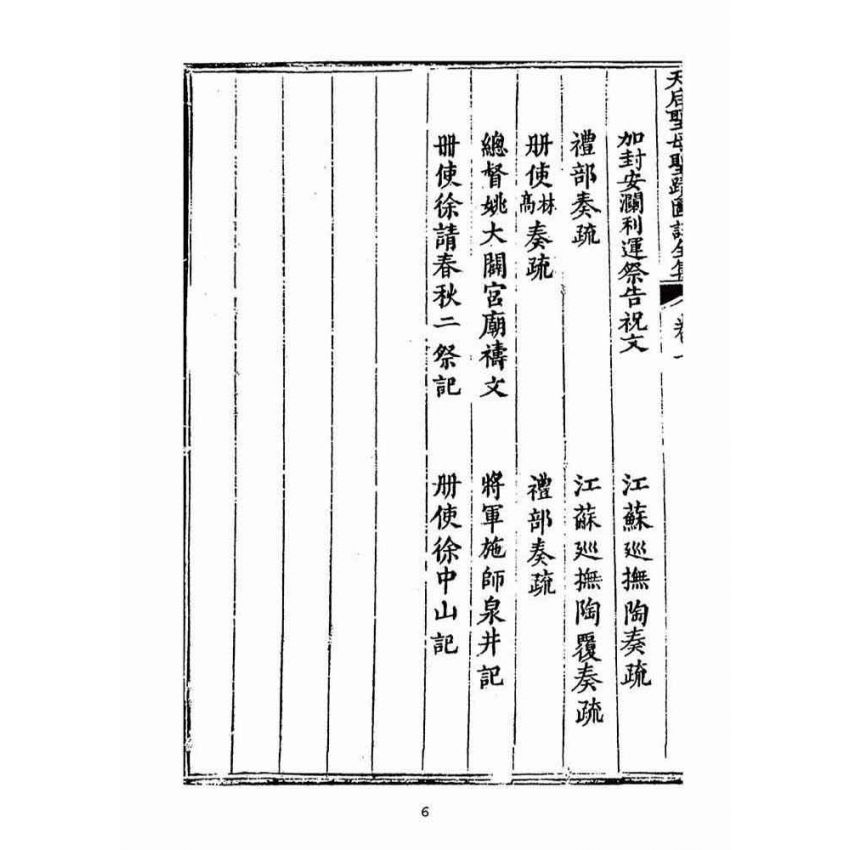 天后聖母聖蹟圖誌全集 卷
加封安瀾利運祭告祝文 江蘇廵撫陶奏疏
禮部奏疏 江蘇廵撫陶覆奏疏
册使林高奏疏 禮部奏疏
總督姚大闢宮廟禱文 將軍施師泉井記
册使徐請春秋二祭記 册使徐中山記
6